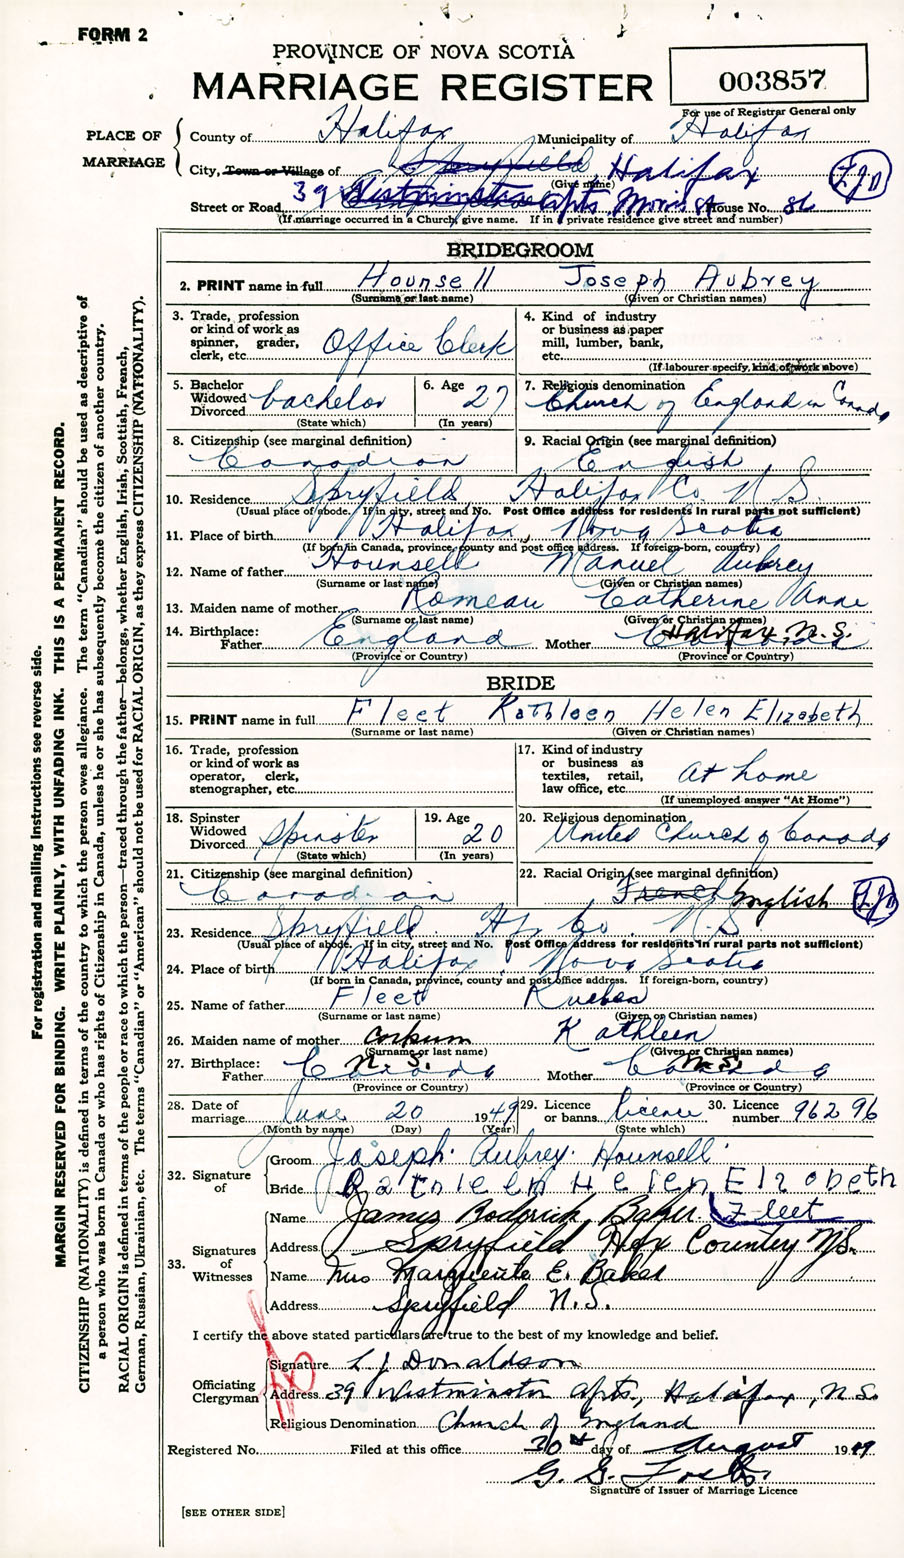 FORM 2
PROVINCE OF NOVA SCOTIA
MARRIAGE REGISTER
003857
For use of Registrar General only
PLACE OF MARRIAGE
County of Halifax Municipality of Halifax
City, Town or Village of Spryfield Halifax
(Give name)
Street or Road 39 Westminster Apts Morris St House No. 36
(If marriage occurred in a Church, give name. If in a private residence give street and number)
LJD
BRIDEGROOM
2. PRINT name in full Hounsell Joseph Aubrey
(Surname or last name) (Given or Christian names)
3. Trade, profession or kind of work as spinner, grader, clerk, etc. Office Clerk
4. Kind of industry or business as paper mill, lumber, bank, etc.
(If labourer specify, kind of work above)
5. Bachelor Widowed Divorced bachelor
(State which)
6. Age 27
(In years)
7. Religious denomination Church of England in Canada
8. Citizenship (see marginal definition) Canadian
9. Racial Origin (see marginal definition) English
10. Residence Spryfield Halifax Co. N.S.
(Usual place of abode. If in city, street and No. Post Office address for residents in rural parts not sufficient)
11. Place of birth Halifax, Nova Scotia
(If born in Canada, province, county and post office address. If foreign-born, country)
12. Name of father Hounsell Manuel Aubrey
(Surname or last name) (Given or Christian names)
13. Maiden name of mother Romeau Catherine Anne
(Surname or last name) (Given or Christian names)
14. Birthplace: Father England Mother Canada Halifax N.S.
(Province or Country) (Province or Country)
BRIDE
15. PRINT name in full Fleet Kathleen Helen Elizabeth
(Surname or last name) (Given or Christian names)
16. Trade, profession or kind of work as operator, clerk, stenographer, etc.
17. Kind of industry or business as textiles, retail, law office, etc. At home
(If unemployed answer "At Home")
18. Spinster Widowed Divorced Spinster
(State which)
19. Age 20
(In years)
20. Religious denomination United Church of Canada
21. Citizenship (see marginal definition) Canadian
22. Racial Origin (see marginal definition) French English
LJD
23. Residence Spryfield Hfx Co. N.S
(Usual place of abode. If in city, street and No. Post Office address for residents in rural parts not sufficient)
24. Place of birth Halifax, Nova Scotia
(If born in Canada, province, county and post office address. If foreign-born, country)
25. Name of father Fleet Rueben
(Surname or last name) (Given or Christian names)
26. Maiden name of mother Corkum Kathleen
(Surname or last name) (Given or Christian names)
27. Birthplace: Father Canada N.S. Mother Canada N.S.
(Province or Country) (Province or Country)
28. Date of marriage June 20 1949
(Month by name) (Day) (Year)
29. Licence or banns licence
(State which)
30. Licence number 96296
32. Signature of
Groom Joseph Aubrey Hounsell
Bride Kathleen Helen Elizabeth Fleet
33. Signatures of Witnesses
Name James Roderick Baker
Address Spryfield Hfx Country N.S.
Name Mrs Marguerite E. Baker
Address Spryfield N.S.
I certify the above stated particulars are true to the best of my knowledge and belief.
Officiating Clergyman
Signature L J Donaldson
Address 39 Westminster Apts, Halifax, N.S.
Religious Denomination Church of England
Registered No. Filed at this office 30th day of August 1949
Signature of Issuer of Marriage Licence
[SEE OTHER SIDE]
For registration and mailing instructions see reverse side.
MARGIN RESERVED FOR BINDING. WRITE PLAINLY, WITH UNFADING INK. THIS IS A PERMANENT RECORD.
CITIZENSHIP (NATIONALITY) is defined in terms of the country to which the person owes allegiance. The term "Canadian" should be used as descriptive of
a person who was born in Canada or who has rights of Citizenship in Canada, unless he or she has subsequently become the citizen of another country.
RACIAL ORIGIN is defined in terms of the people or race to which the person—traced through the father—belongs, whether English, Irish, Scottish, French,
German, Russian, Ukrainian, etc. The terms "Canadian" or "American" should not be used for RACIAL ORIGIN, as they express CITIZENSHIP (NATIONALITY).